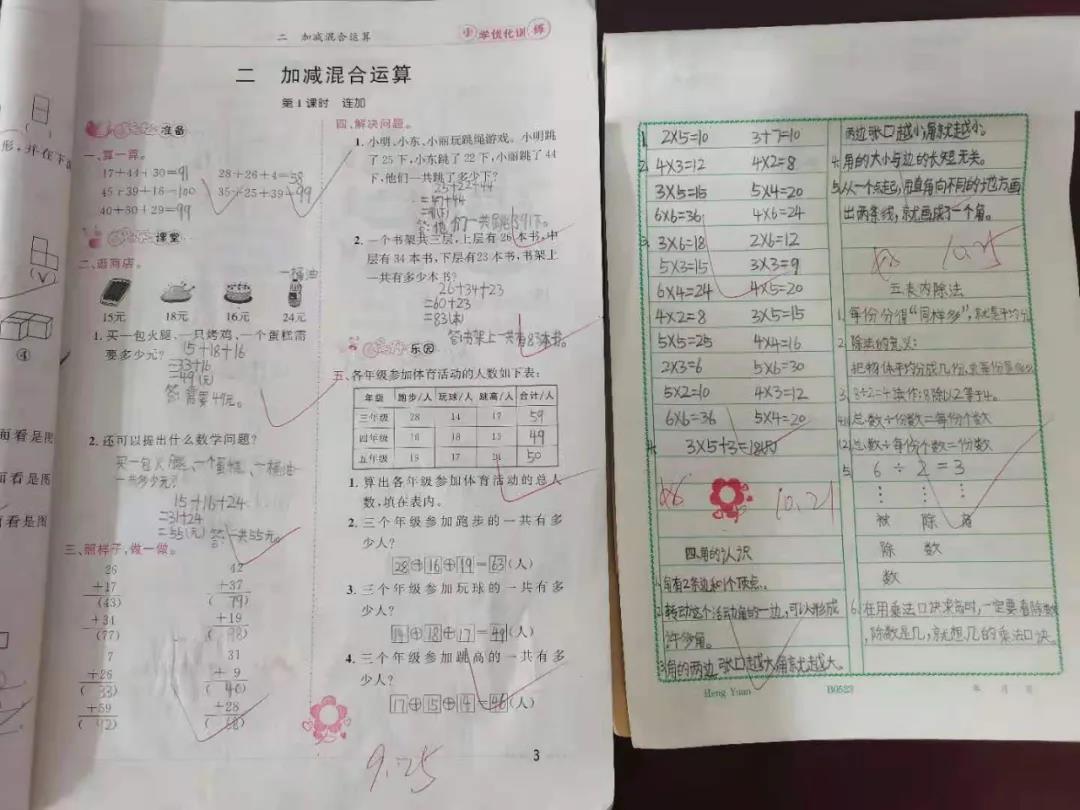 二 加减混合运算
小学优化训练
二 加减混合运算
第1课时 连加
准备
一、算一算。
17+44+30=91 28+26+4=58
45+39+16=100 35+25+39=99
40+30+29=99
课堂
二、逛商店。
一桶油
15元 18元 16元 24元
1. 买一包火腿、一只烤鸡、一个蛋糕需
要多少元?
15+18+16
=33+16
=49(元)
答:需要49元。
2. 还可以提出什么数学问题?
买一包火腿、一个蛋糕、一桶油
一共多少元?
15+16+24
=31+24
=55(元) 答:一共55元。
三、照样子,做一做。
26 42
+17 +37
(43) (79)
+34 +19
(77) (98)
7 31
+26 +9
(33) (40)
+59 +28
(92) (68)
四、解决问题。
1. 小明、小东、小丽玩跳绳游戏。小明跳
了25下,小东跳了22下,小丽跳了44
下,他们一共跳了多少下?
25+22+44
=47+44
=91(下)
答:他们一共跳了91下。
2. 一个书架共三层,上层有26本书,中
层有34本书,下层有23本书,书架上
一共有多少本书?
26+34+23
=60+23
=83(本)
答:书架上一共有83本书。
乐园
五、各年级参加体育活动的人数如下表:
年级 跑步/人 玩球/人 跳高/人 合计/人
三年级 28 14 17 59
四年级 16 18 15 49
五年级 19 17 14 50
1. 算出各年级参加体育活动的总人
数,填在表内。
2. 三个年级参加跑步的一共有多
少人?
28+16+19=63(人)
3. 三个年级参加玩球的一共有多
少人?
14+18+17=49(人)
4. 三个年级参加跳高的一共有多
少人?
17+15+14=46(人)
9.25
3
形,并在下
面看是图
而看是图
看是图
(√)
④
1. 2×5=10 3+7=10
2. 4×3=12 4×2=8
3×5=15 5×4=20
6×6=36 4×6=24
3. 3×6=18 2×6=12
5×3=15 3×3=9
6×4=24 4×5=20
4×2=8 3×5=15
5×5=25 4×4=16
2×3=6 5×6=30
5×2=10 4×3=12
6×6=36 5×4=20
4. 3×5+3=18
10.21
四.角的认识
1.角有2条边和1个顶点.
2.转动这个活动角的一边,可以形成
许多角。
3.角的两边张口越大,角就越大。
两边张口越小,角就越小。
4.角的大小与边的长短无关。
5.从一个点起,用直角向不同的方向画
出两条线,就画成了一个角。
10.25
五.表内除法
1.每份分得"同样多",就是平均分
2.除法的意义:
把物体平均分成几份,求每份是
3. 8÷2=4读作:8除以2等于4。
4.(1)总数÷份数=每份个数
(2)总数÷每份个数=份数
5. 6÷2=3
被 除 商
除 数
数
6.在用乘法口诀求商时,一定要看除数
,除数是几,就想几的乘法口诀。
Heng Yuan B0523 年 月 日